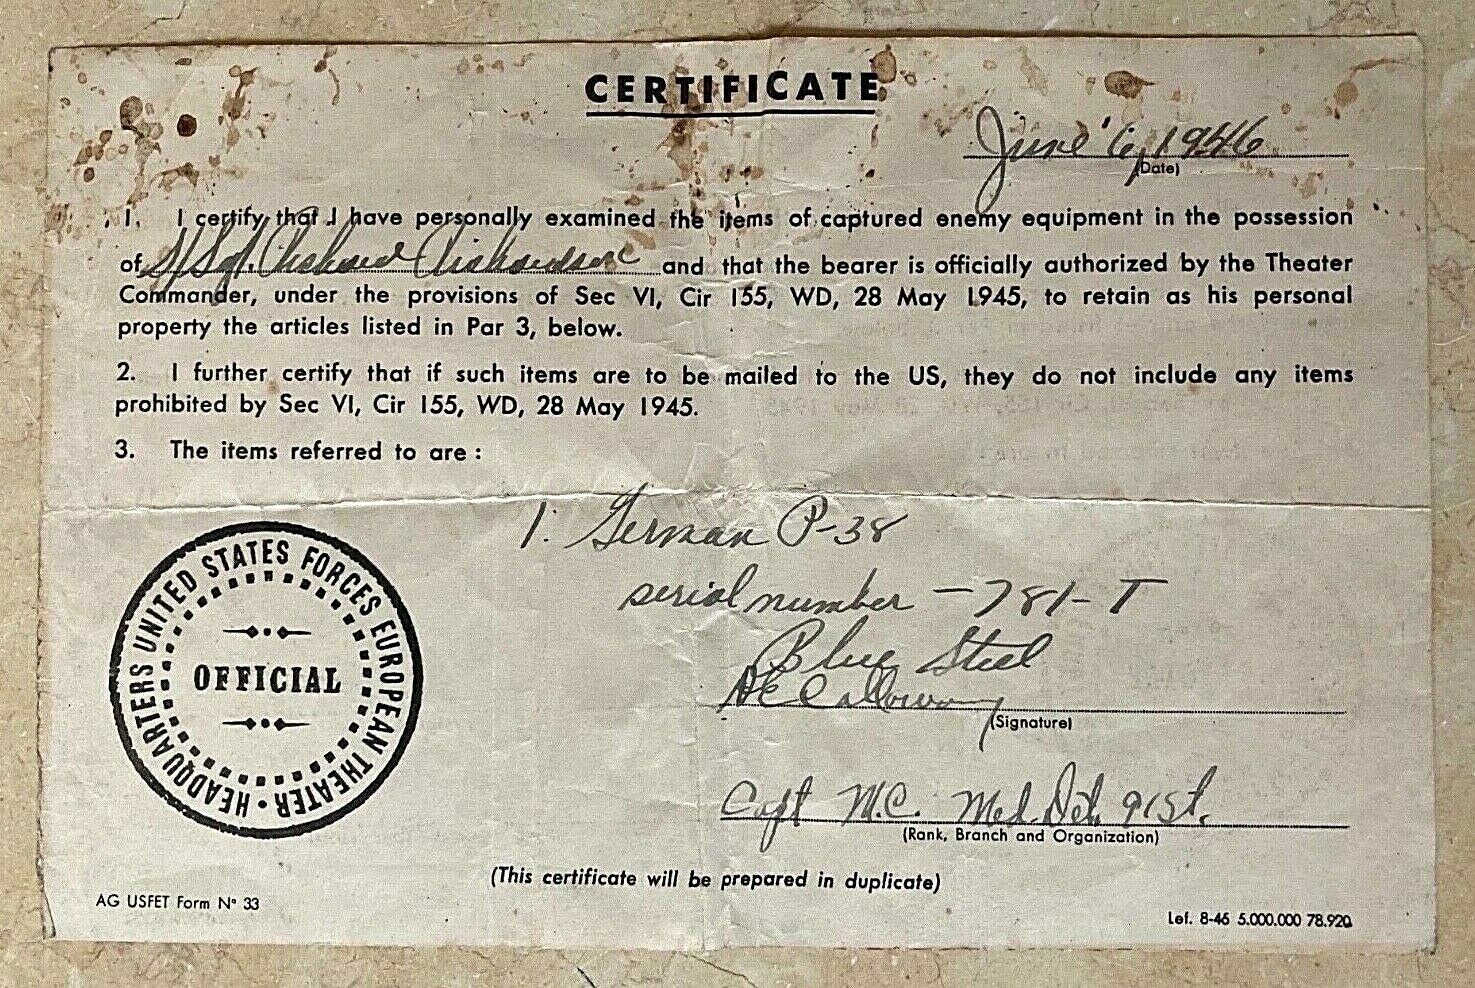 CERTIFICATE
June 6, 1946
(Date)
1. I certify that I have personally examined the items of captured enemy equipment in the possession
of S/Sgt. Richard Richardson and that the bearer is officially authorized by the Theater
Commander, under the provisions of Sec VI, Cir 155, WD, 28 May 1945, to retain as his personal
property the articles listed in Par 3, below.
2. I further certify that if such items are to be mailed to the US, they do not include any items
prohibited by Sec VI, Cir 155, WD, 28 May 1945.
3. The items referred to are :
1. German P-38
serial number -781-T
Blue Steel
Calloway
(Signature)
Capt M.C. Med. Det. 91st.
(Rank, Branch and Organization)
HEADQUARTERS UNITED STATES FORCES EUROPEAN THEATER •
OFFICIAL
(This certificate will be prepared in duplicate)
AG USFET Form N° 33
Lef. 8-46 5.000.000 78.920